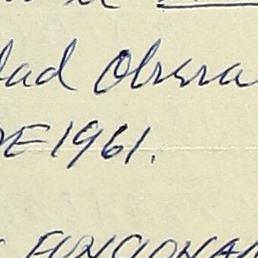 dad Obrera
DE 1961.
FUNCIONA